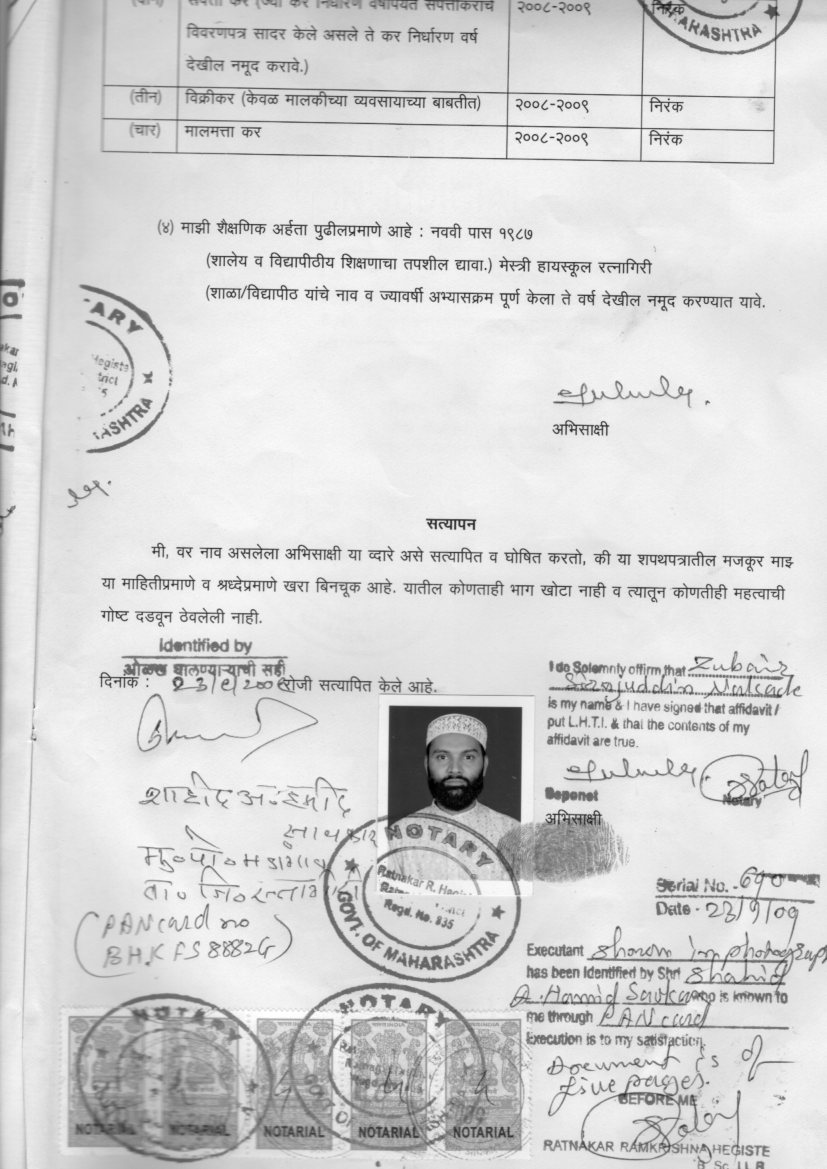 संपत्ती कर (ज्या कर निर्धारण वर्षापर्यंत संपत्तीकराचे २००८-२००९ निरंक
विवरणपत्र सादर केले असले ते कर निर्धारण वर्ष
देखील नमूद करावे.)
(तीन) विक्रीकर (केवळ मालकीच्या व्यवसायाच्या बाबतीत) २००८-२००९ निरंक
(चार) मालमत्ता कर २००८-२००९ निरंक
(४) माझी शैक्षणिक अर्हता पुढीलप्रमाणे आहे : नववी पास १९८७
(शालेय व विद्यापीठीय शिक्षणाचा तपशील द्यावा.) मेस्त्री हायस्कूल रत्नागिरी
(शाळा/विद्यापीठ यांचे नाव व ज्यावर्षी अभ्यासक्रम पूर्ण केला ते वर्ष देखील नमूद करण्यात यावे.
अभिसाक्षी
सत्यापन
मी, वर नाव असलेला अभिसाक्षी या व्दारे असे सत्यापित व घोषित करतो, की या शपथपत्रातील मजकूर माझ
या माहितीप्रमाणे व श्रध्देप्रमाणे खरा बिनचूक आहे. यातील कोणताही भाग खोटा नाही व त्यातून कोणतीही महत्वाची
गोष्ट दडवून ठेवलेली नाही.
Identified by
ओळख घालण्याऱ्याची सही
दिनांक : 23/9/2009 रोजी सत्यापित केले आहे.
शाहीद अ. हमीद
सावकार
मु. पो. मजगाव
ता. जि. रत्नागिरी
(PAN card no
BHKFS8882G)
I do Solemnly offirm that Zubair
Sirajuddin Malsade
is my name & I have signed that affidavit /
put L.H.T.I. & that the contents of my
affidavit are true.
Deponet Notary
अभिसाक्षी
NOTARY
Ratnakar R.
Regd. No. 835
GOVT. OF MAHARASHTRA
Serial No. - 690
Date - 23/9/09
Executant shown in photograph
has been Identified by Shri Shahid
A. Hamid Savkar who is known to
me through PAN card
Execution is to my satisfaction.
Document is of
five pages.
BEFORE ME
RATNAKAR RAMKRISHNA HEGISTE
B. Sc. LL.B.
NOTARY
NOTARY
NOTARIAL NOTARIAL NOTARIAL NOTARIAL